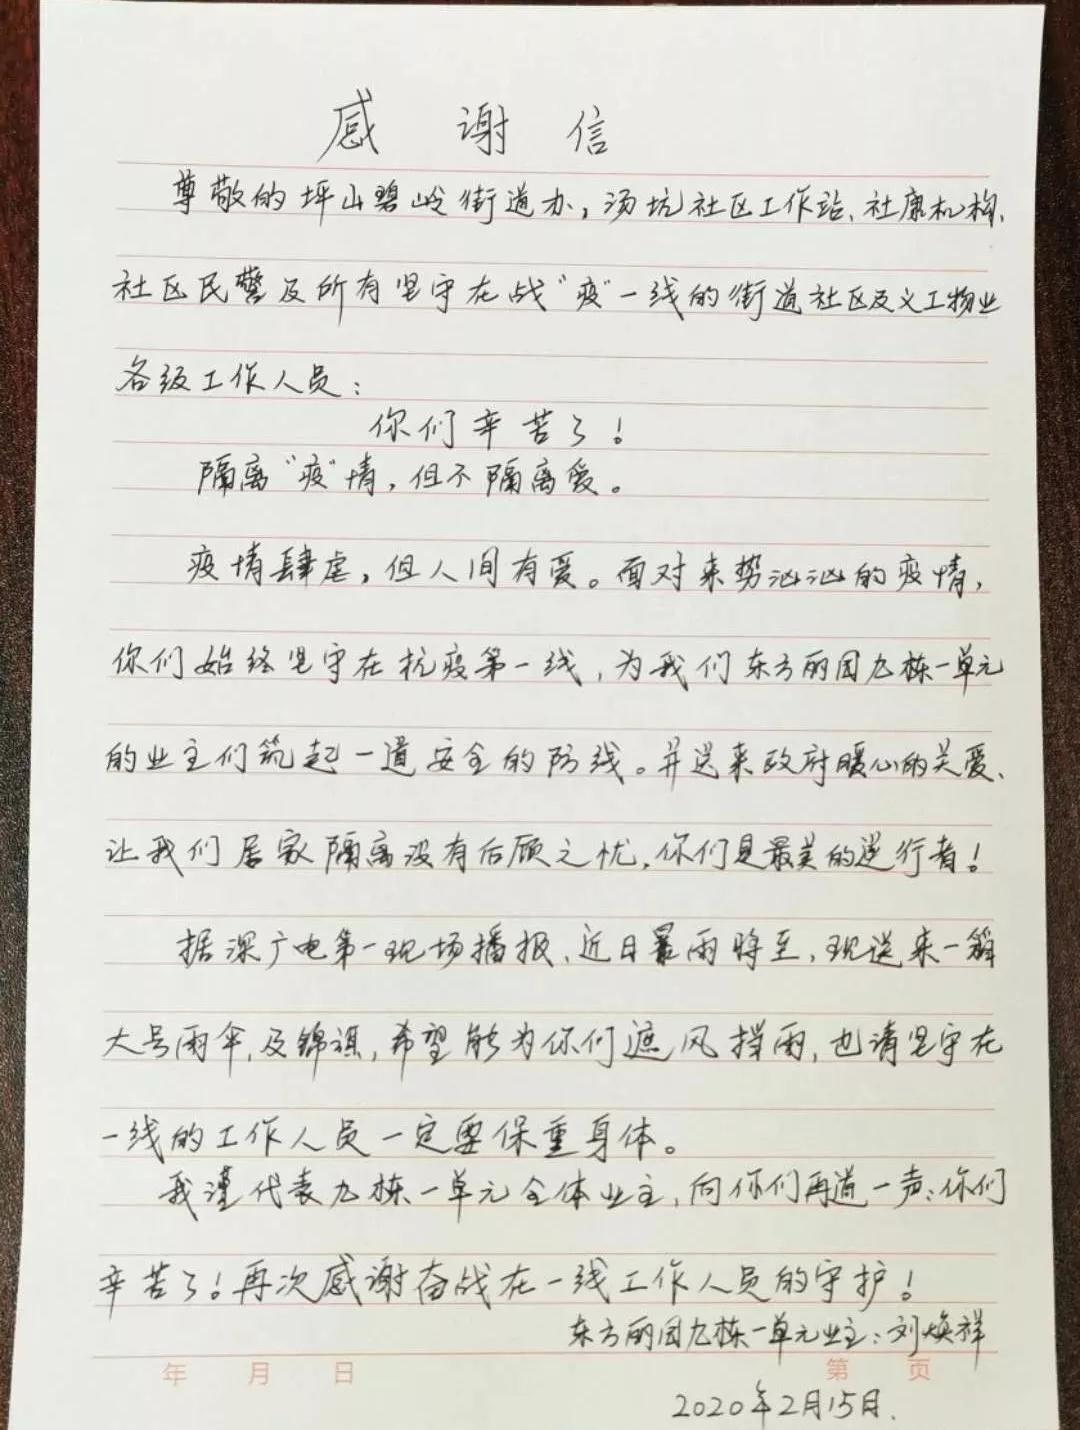 感谢信
尊敬的坪山碧岭街道办，汤坑社区工作站、社康机构、
社区民警及所有坚守在战“疫”一线的街道社区及义工物业
各级工作人员：
你们辛苦了！
隔离“疫”情，但不隔离爱。
疫情肆虐，但人间有爱。面对来势汹汹的疫情，
你们始终坚守在抗疫第一线，为我们东方丽园九栋一单元
的业主们筑起一道安全的防线。并送来政府暖心的关爱、
让我们居家隔离没有后顾之忧，你们是最美的逆行者！
据深广电第一现场播报，近日暴雨将至，现送来一箱
大号雨伞，及锦旗，希望能为你们遮风挡雨，也请坚守在
一线的工作人员一定要保重身体。
我谨代表九栋一单元全体业主，向你们再道一声：你们
辛苦了！再次感谢奋战在一线工作人员的守护！
东方丽园九栋一单元业主：刘焕祥
年 月 日 第 页
2020年2月15日.